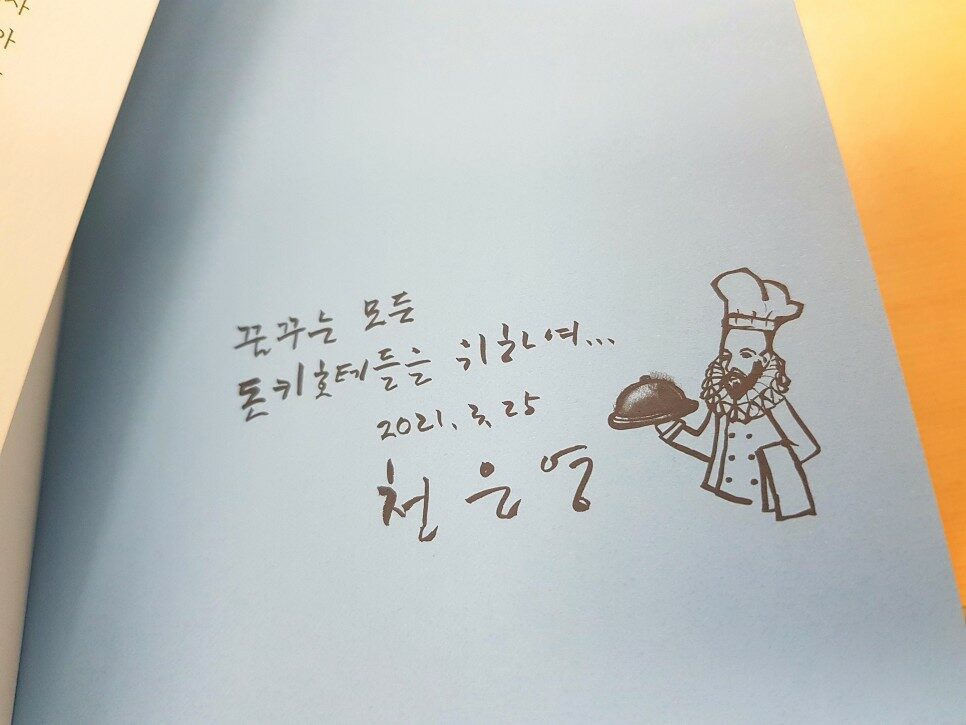 사
아
꿈꾸는 모든
돈키호테들을 위하여...
2021. 25
천운영